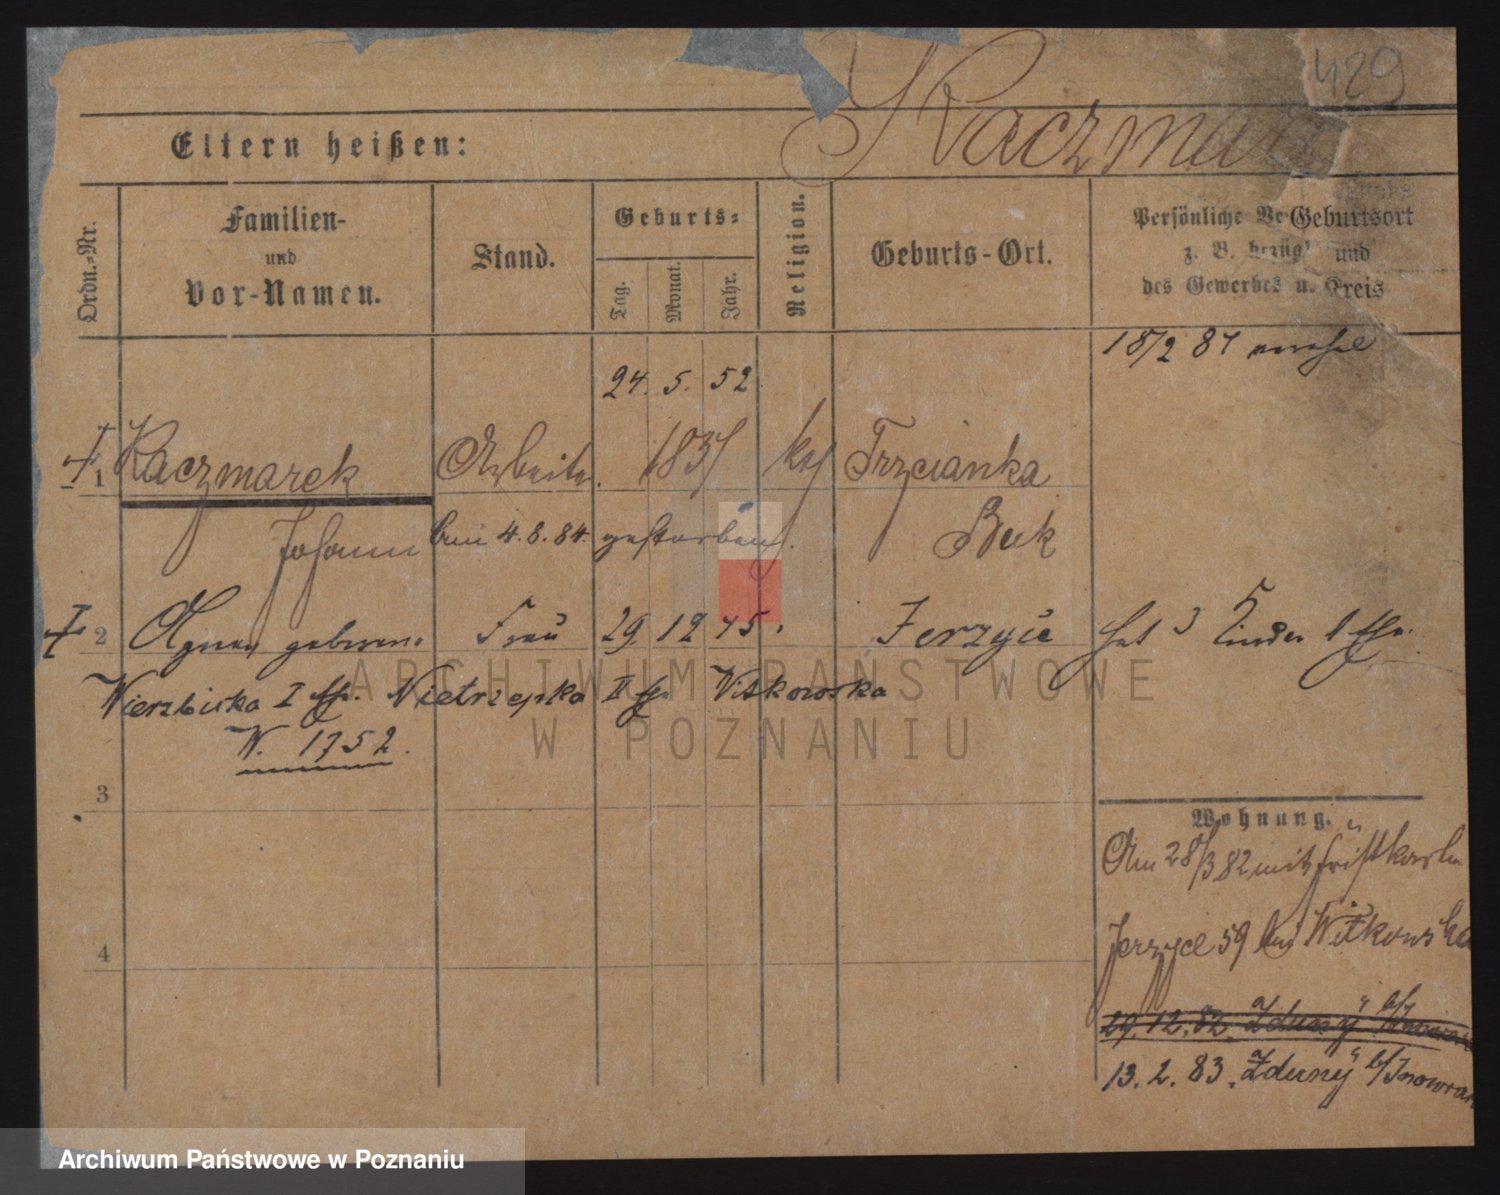 429
Kaczmarek
Eltern heißen:
Ordn.-Nr.
Familien-
und
Vor-Namen.
Stand.
Geburts-
Tag.
Monat.
Jahr.
Religion.
Geburts-Ort.
Persönliche Ve Geburtsort
z. B. bezügl und
des Gewerbes u. Kreis
18/2 87
24. 5. 52
1 Kaczmarek Arbeiter. 183 kath Trzcianka
Johann am 4. 8. 84. gestorben. Buk
2 Agnes geborene Frau 29. 12 45. Jerzyce hat 3 Kinder 1 Ehe.
Wierzbicka I Ehe. Nietrzepka II Ehe Witkowska
W. 1752.
3
Wohnung.
Am 28/3 82 mit
Jerzyce 59 bei Witkowska
4
29. 12. 82. "Zduny" b/
13. 2. 83. "Zduny" b/Inowraz
ARCHIWUM PAŃSTWOWE
W POZNANIU
Archiwum Państwowe w Poznaniu